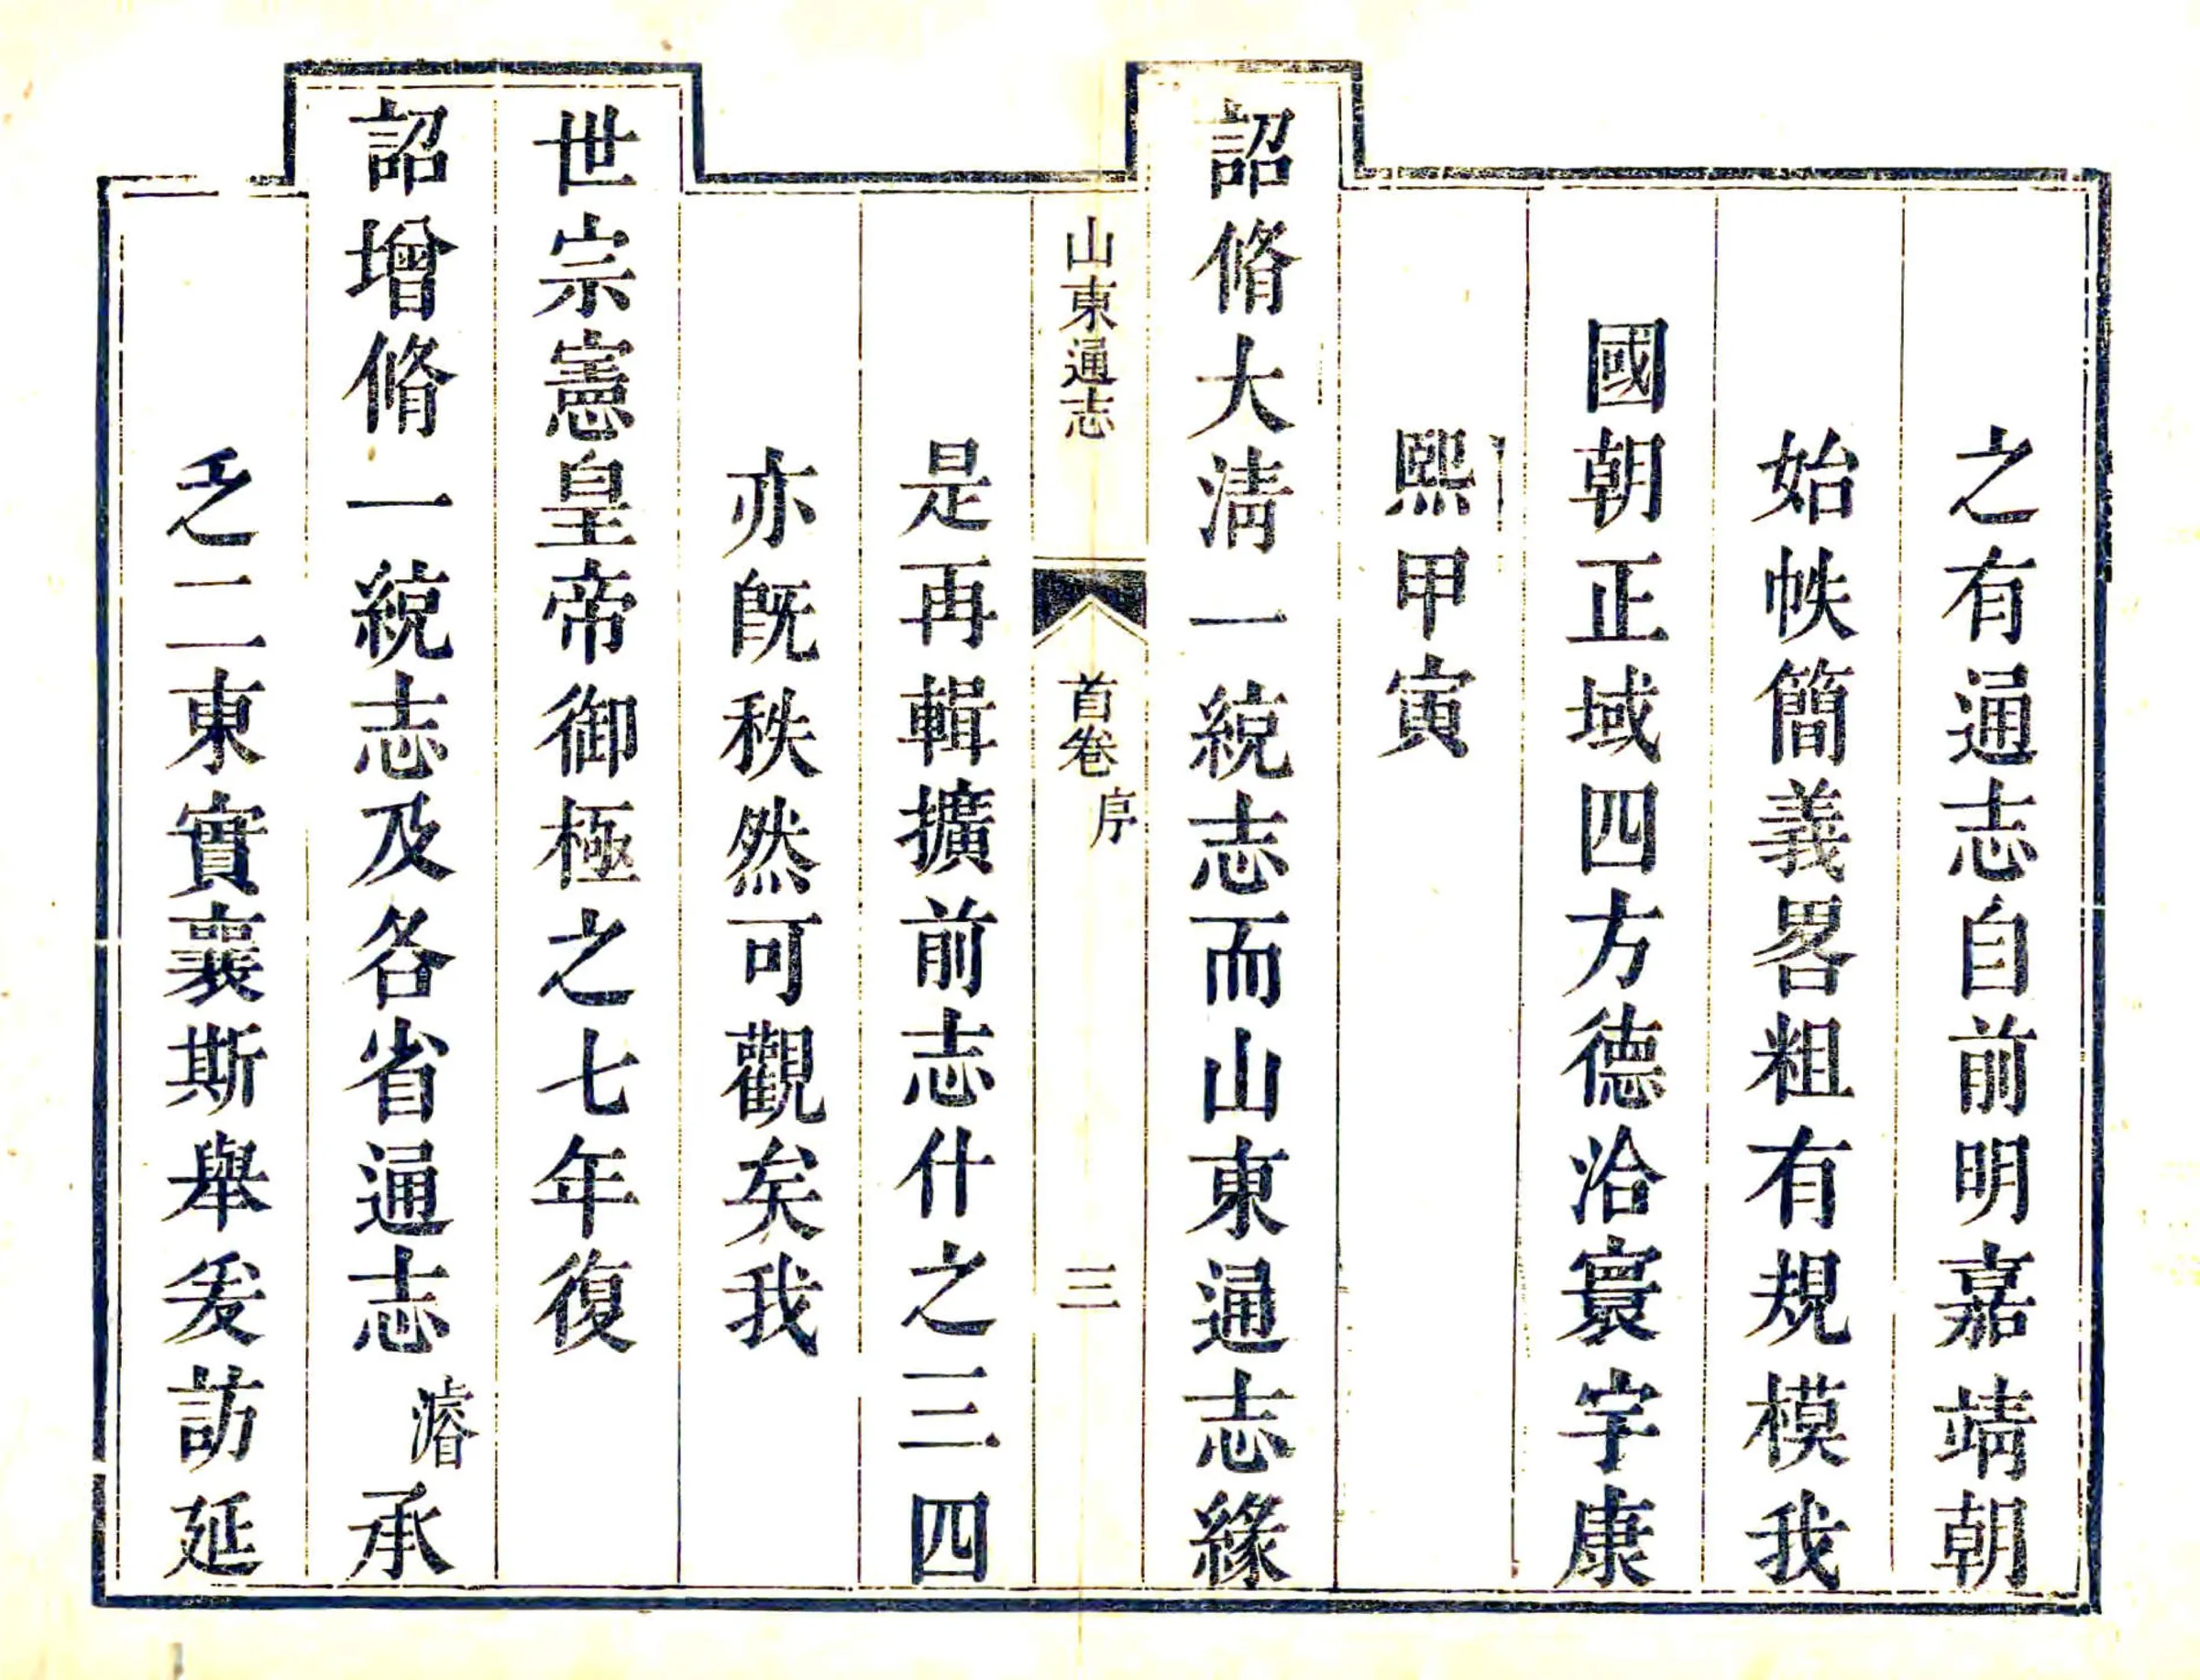 之有通志自前明嘉靖朝
始帙簡義畧粗有規模我
國朝正域四方德洽寰宇康
熙甲寅
詔脩大淸一統志而山東通志緣
山東通志 首卷 序 三
是再輯擴前志什之三四
亦旣秩然可觀矣我
世宗憲皇帝御極之七年復
詔增脩一統志及各省通志濬承
乏二東實襄斯舉爰訪延